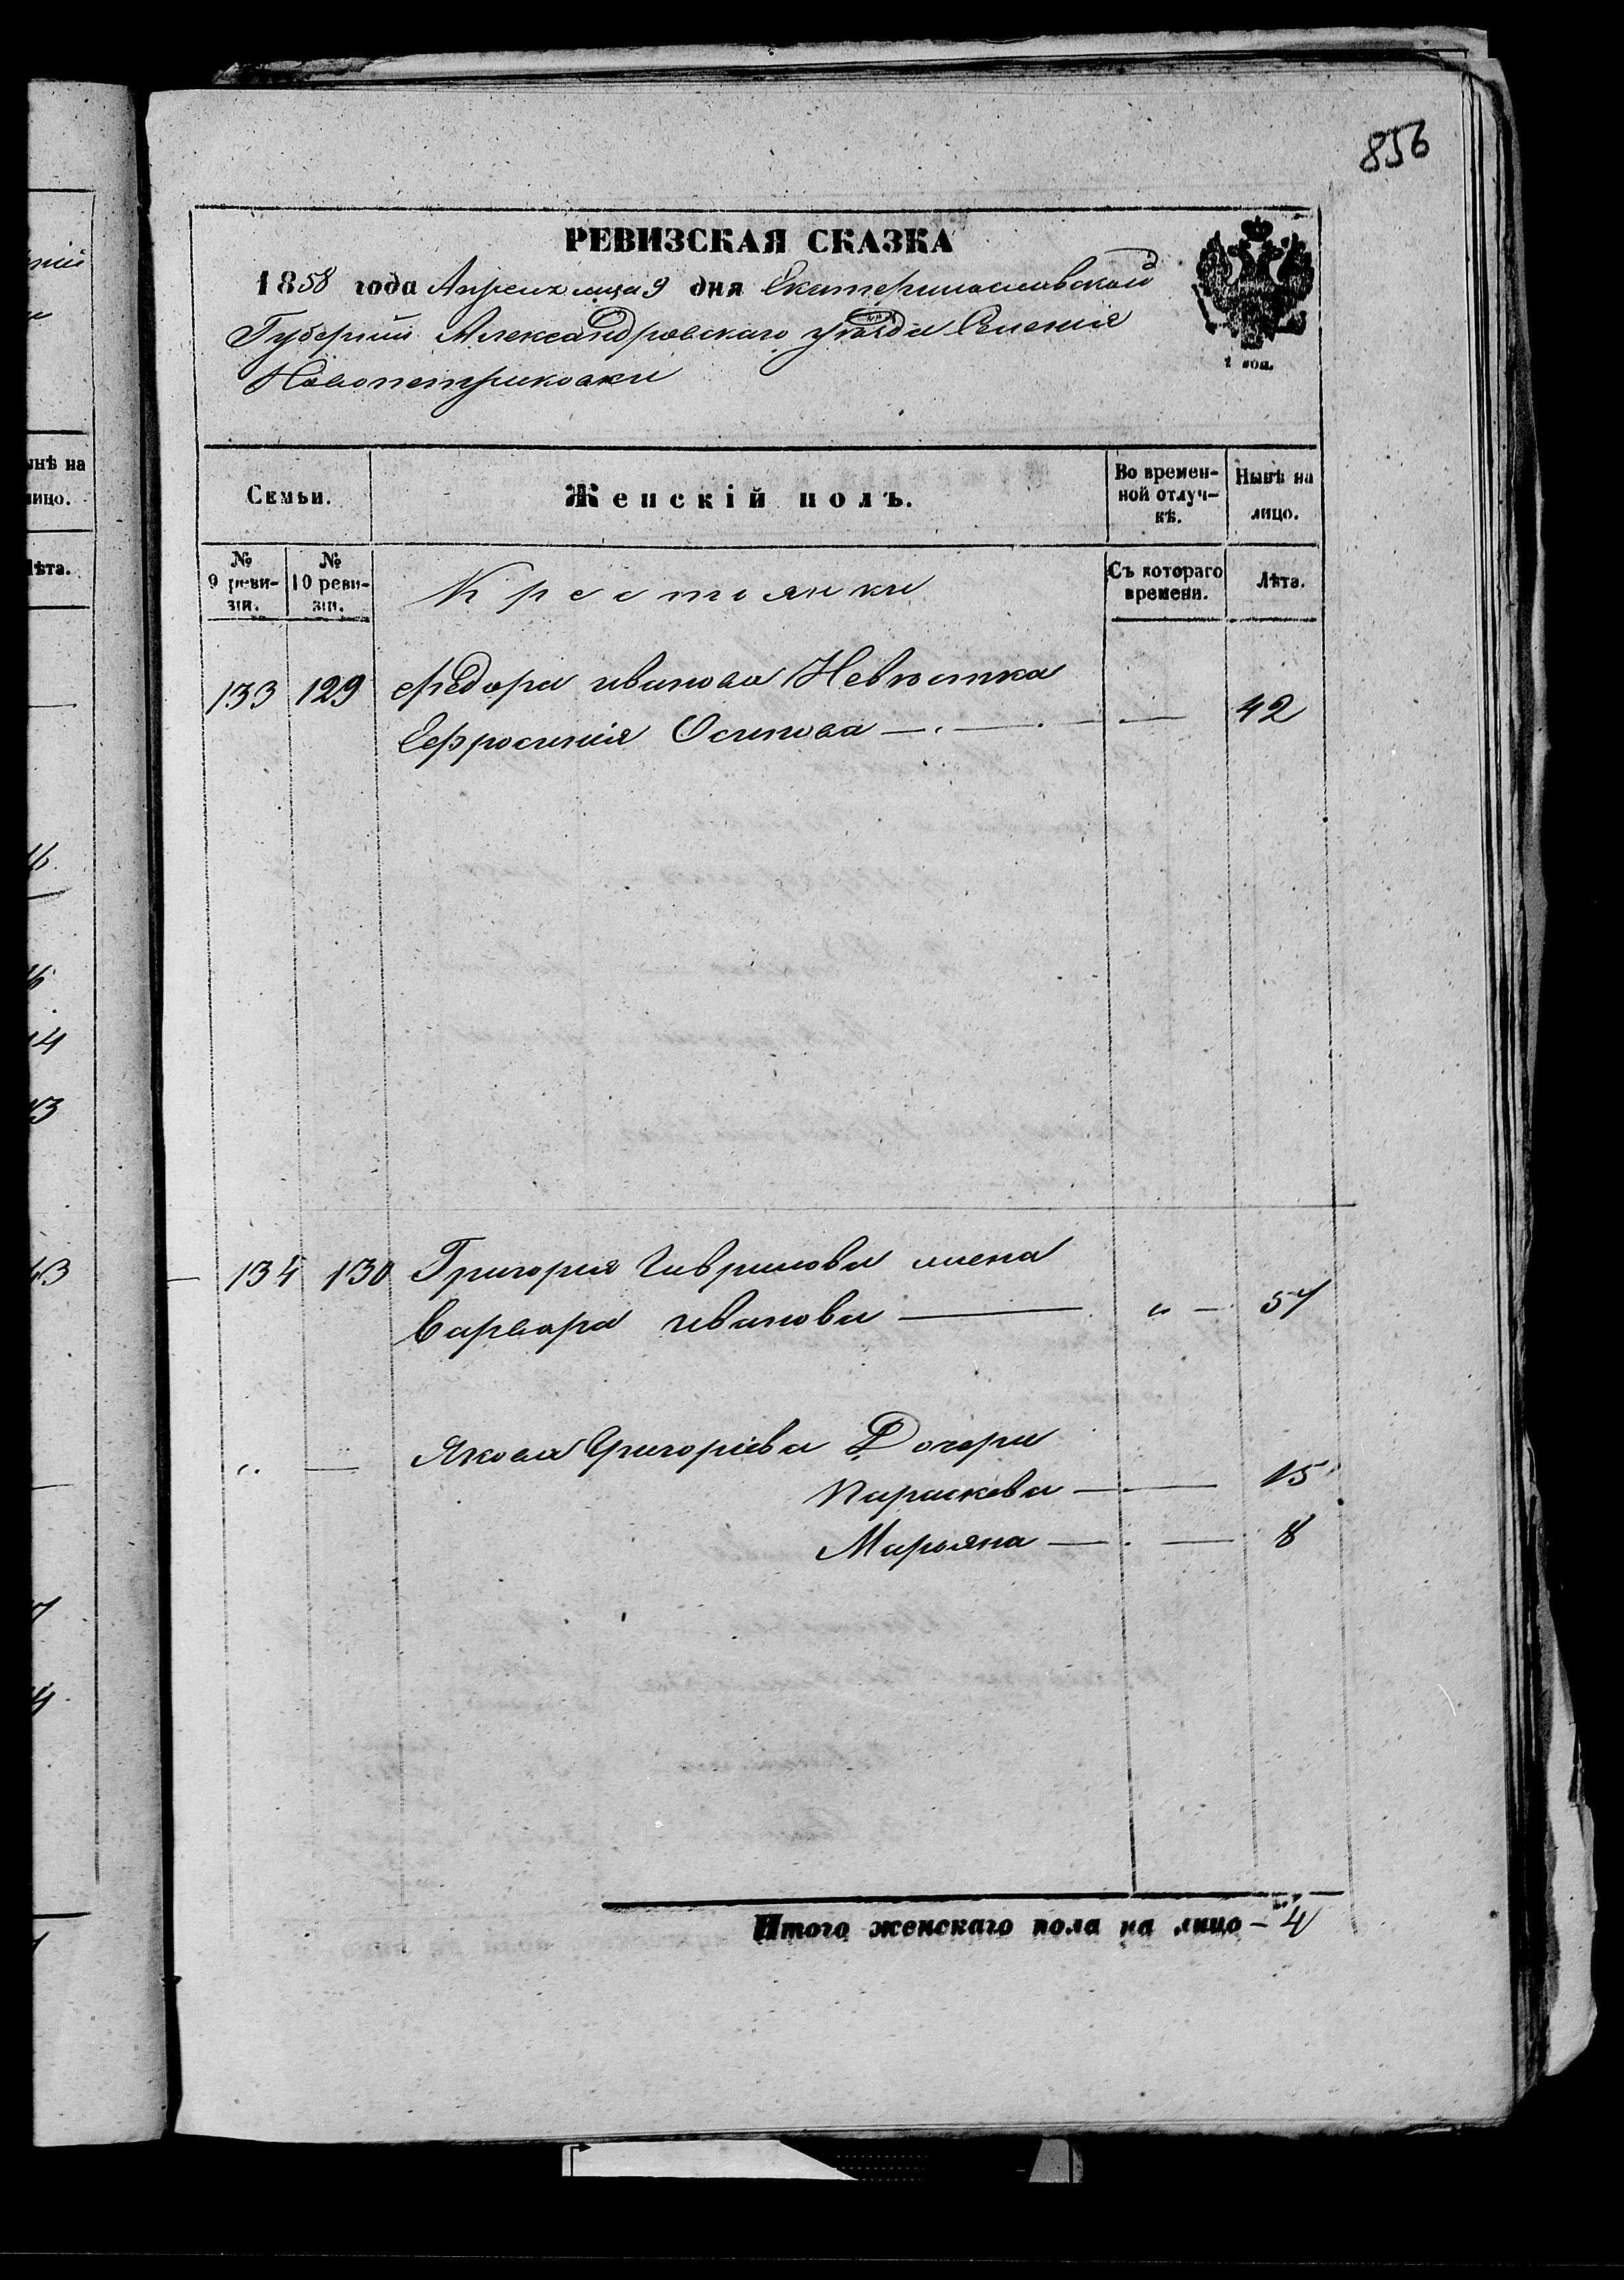 856
РЕВИЗСКАЯ СКАЗКА
1858 года Апреля мца 9 дня Екатеринославской
Губернии Александровскаго уезда Селения
Новопетриковки
Семьи.
Женскій полъ.
Во времен-
ной отлуч-
кѣ.
Нынѣ на
лицо.
№
9 реви-
зіи.
№
10 реви-
зіи.
Крестьянки
Съ котораго
времени.
Лѣта.
133 129 Федора иванова Невѣстка
Ефросинія Осипова — — 42
134 130 Григорія Гаврилова жена
Варвара иванова — „ — 57
„ — Якова Григоріева Дочери
Параскева — — 15
Марьяна — — 8
Итого женскаго пола на лицо — 4
ынѣ на
лицо.
лѣта.